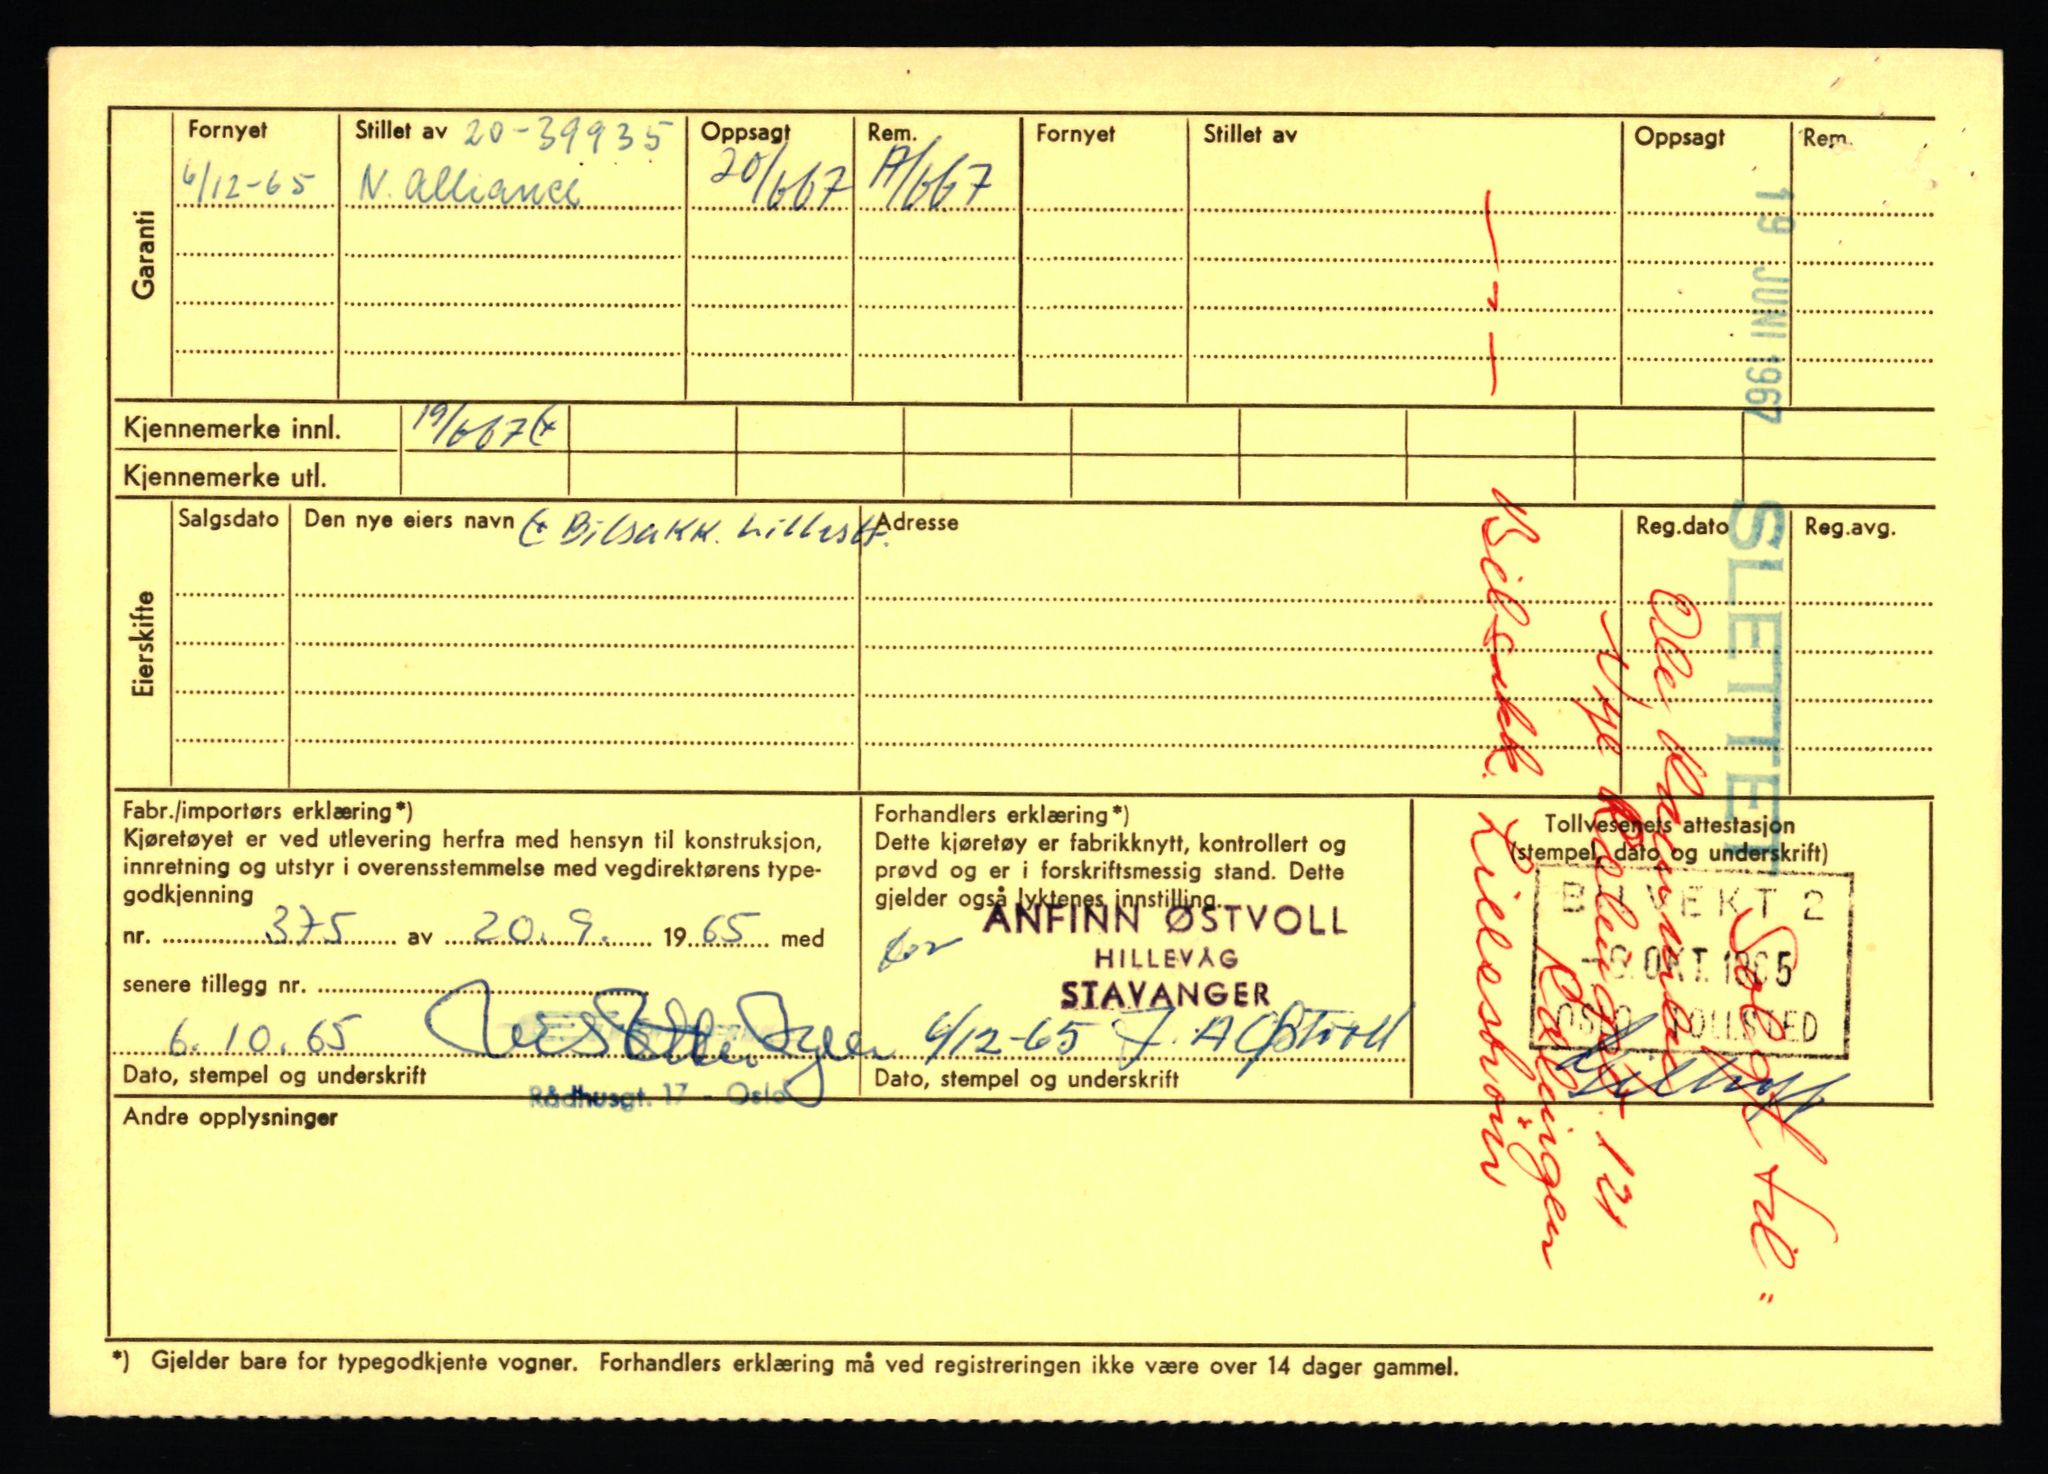 Garanti
Fornyet Stillet av 20-39935 Oppsagt Rem. Fornyet Stillet av Oppsagt Rem.
6/12-65 N. Alliance 20/667 A/667
Kjennemerke innl. 19/667
Kjennemerke utl.
Eierskifte
Salgsdato Den nye eiers navn Bilsakk. Lillestr. Adresse Reg.dato Reg.avg.
Fabr./importørs erklæring*)
Kjøretøyet er ved utlevering herfra med hensyn til konstruksjon,
innretning og utstyr i overensstemmelse med vegdirektørens type-
godkjenning
nr. 375 av 20.9. 1965 med
senere tillegg nr.
6.10.65
Dato, stempel og underskrift
Rådhusgt. 17 - Oslo
Forhandlers erklæring*)
Dette kjøretøy er fabrikknytt, kontrollert og
prøvd og er i forskriftsmessig stand. Dette
gjelder også lyktenes innstilling.
for ANFINN ØSTVOLL
HILLEVÅG
STAVANGER
6/12-65 J. A Østvoll
Dato, stempel og underskrift
Tollvesenets attestasjon
(stempel, dato og underskrift)
OKT. 1965
Andre opplysninger
*) Gjelder bare for typegodkjente vogner. Forhandlers erklæring må ved registreringen ikke være over 14 dager gammel.
19 JUNI 1967 SLETTET
Solgt til:
Rælingen
Bilsakk. Lillestrøm